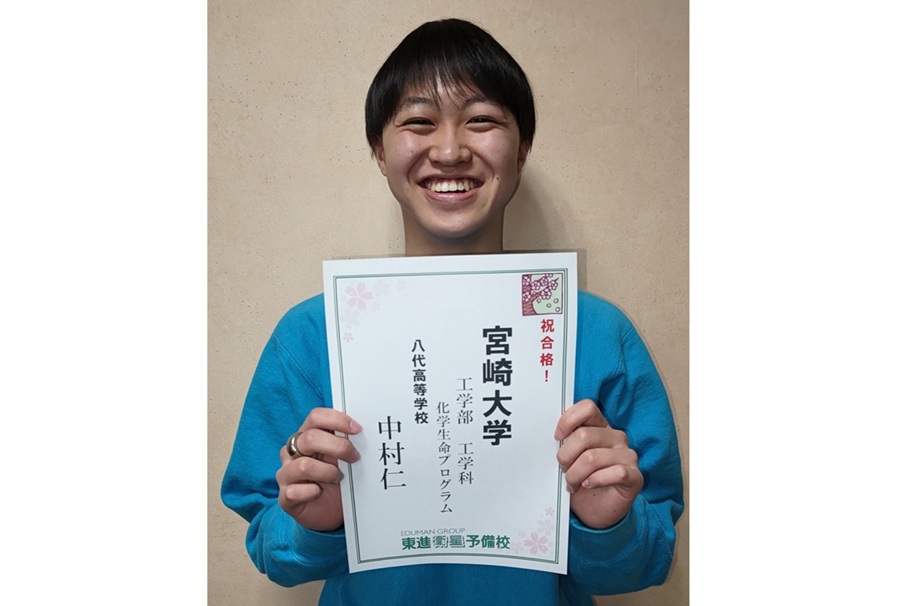 祝合格！
宮崎大学
工学部　工学科
化学生命プログラム
八代高等学校
中村仁
EDUMAN GROUP
東進衛星予備校